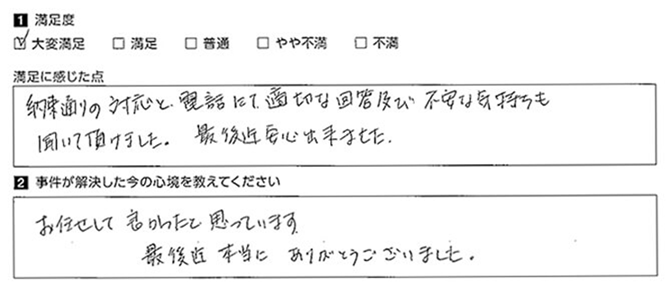 1 満足度
☑ 大変満足 □ 満足 □ 普通 □ やや不満 □ 不満
満足に感じた点
約束通りの対応と、電話にて適切な回答及び不安な気持ちも
聞いて頂けました。 最後迄安心出来ました.
2 事件が解決した今の心境を教えてください
お任せして良かったと思っています
最後迄 本当に ありがとうございました。